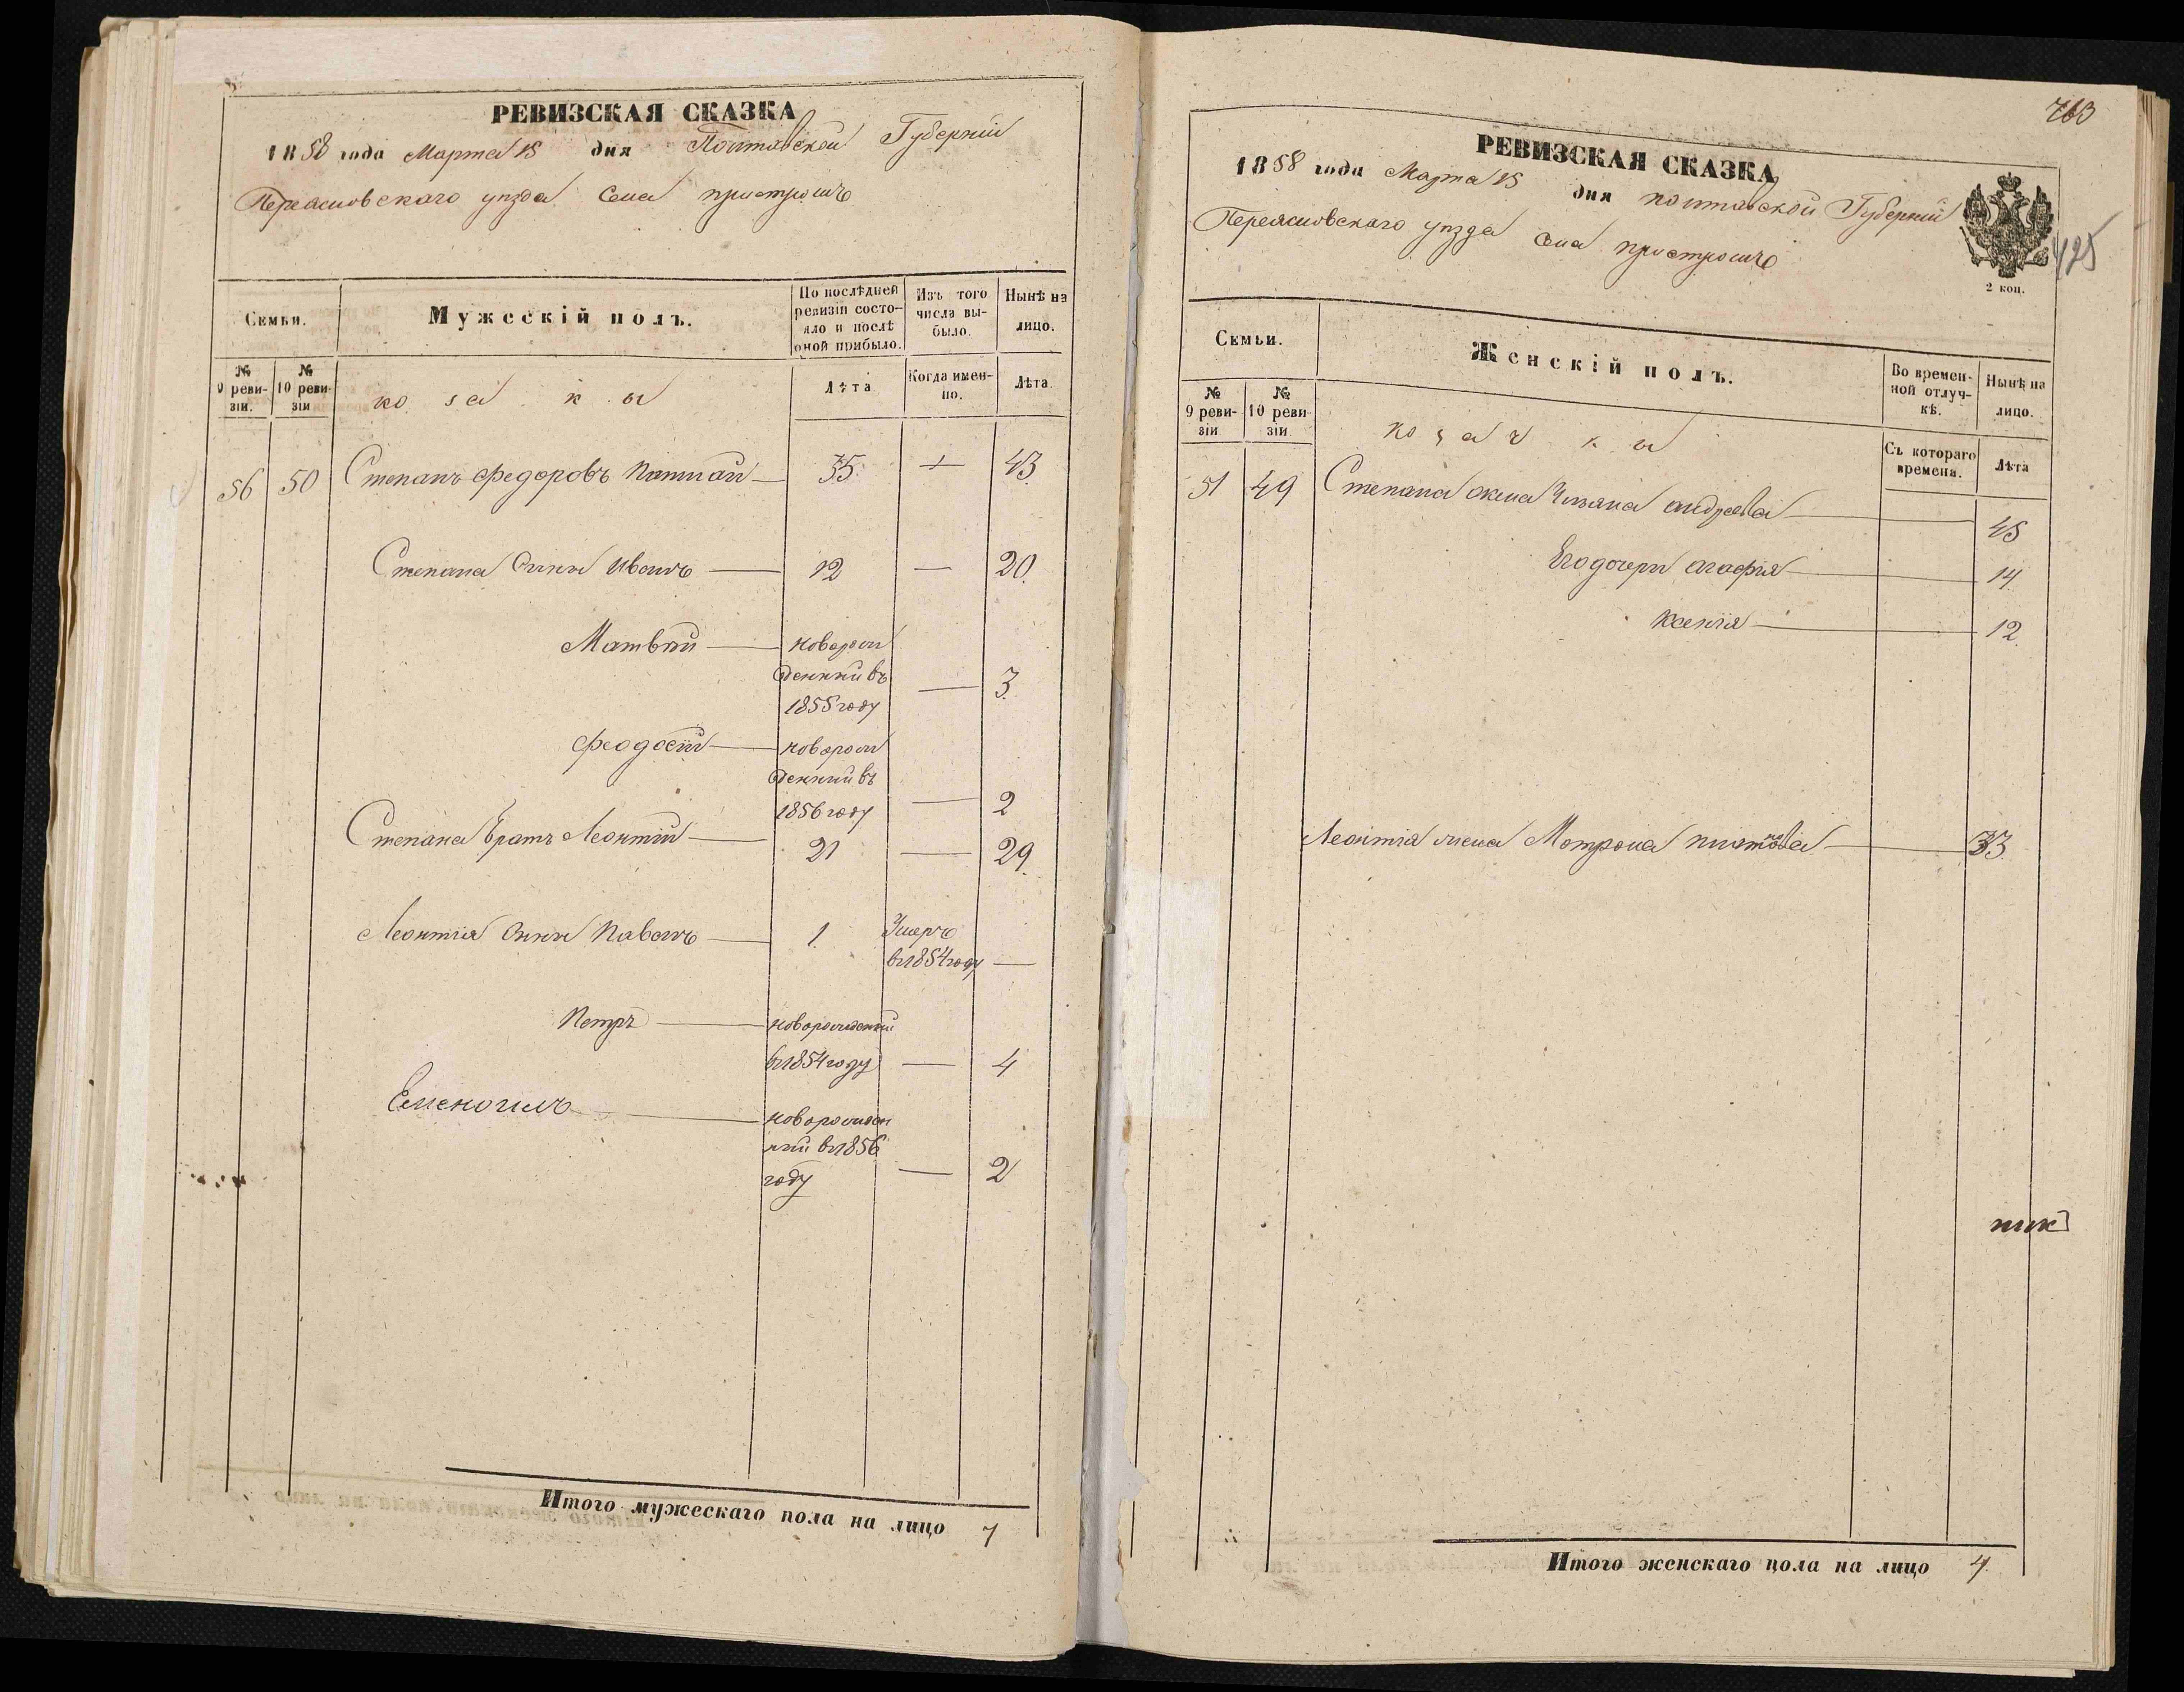 РЕВИЗСКАЯ СКАЗКА
1858 года Марта 15 дня Полтавской Губерніи
Переясловскаго уѣзда Села пристромъ
Семьи.
Мужескій полъ.
По послѣдней ревизіи состояло и послѣ оной прибыло.
Изъ того числа выбыло.
Нынѣ на лицо.
№ 9 ревизіи.
№ 10 ревизіи
козаки
Лѣта
Когда именно.
Лѣта.
56 50 Степанъ Федоровъ 35 43
Степана Сынъ Иванъ 12 — 20
Матвѣй новорожденный въ 1855 году — 3
Феодосій новорожденный въ 1856 году — 2
Степана братъ Леонтій 21 — 29
Леонтія Сынъ Павелъ 1 Умеръ въ 1854 году —
Петръ новорожденный въ 1854 году — 4
новорожденный въ 1856 году — 2
Итого мужескаго пола на лицо 7
763
РЕВИЗСКАЯ СКАЗКА
1858 года Марта 15 дня полтавской Губерніи
Переясловскаго уѣзда Села пристромъ
425
2 коп.
Семьи.
Женскій полъ.
Во временной отлучкѣ.
Нынѣ на лицо.
№ 9 ревизіи
№ 10 ревизіи
козачки
Съ котораго времена.
Лѣта
51 49 Степана жена Ульяна андреева 45
Его дочери агафія 14
Ксенія 12
Леонтія жена Мотрона 33
Итого женскаго пола на лицо 4